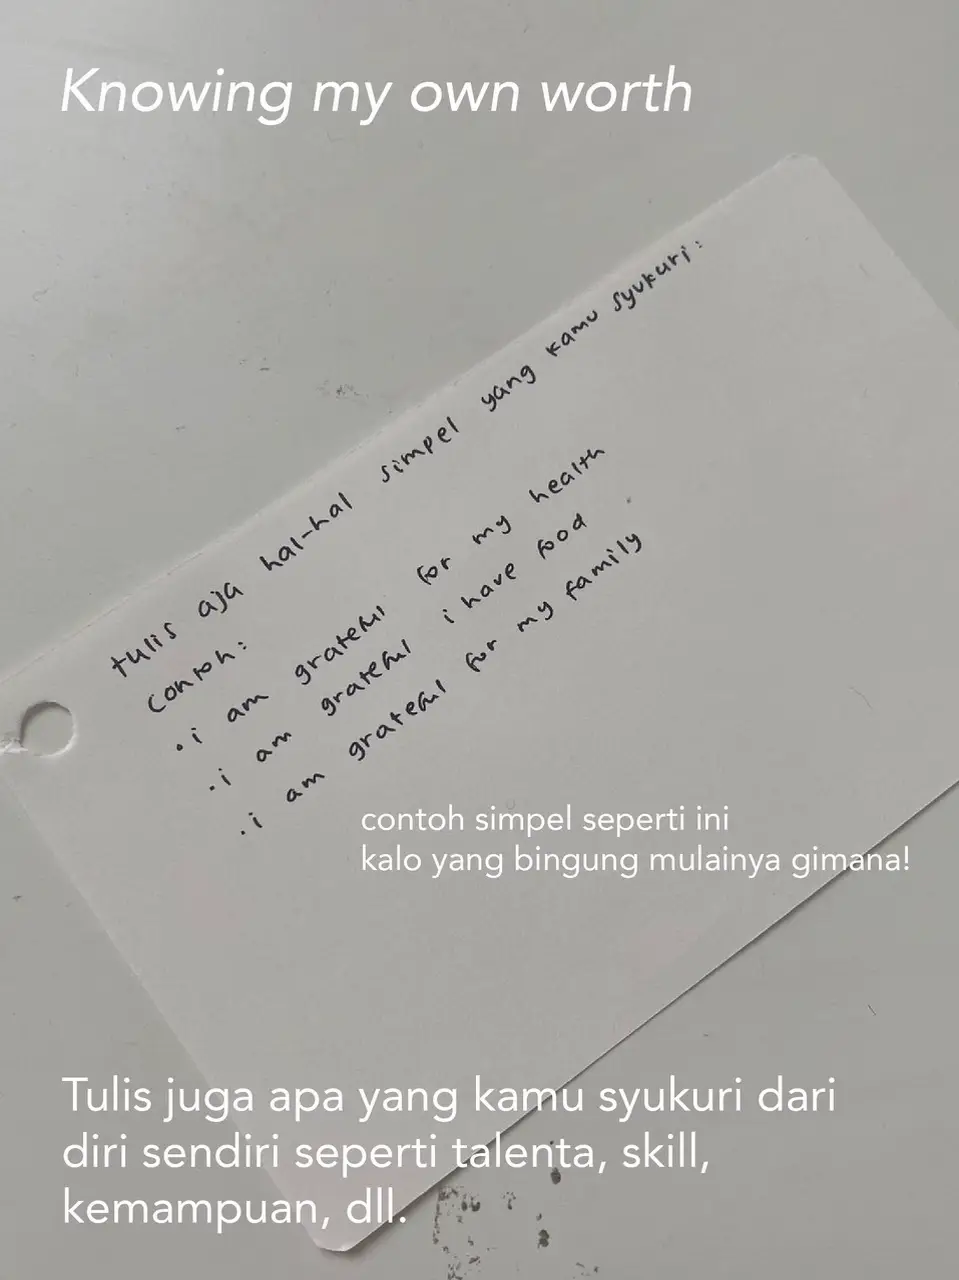 Knowing my own worth
tulis aja hal-hal simpel yang kamu syukuri:
Contoh:
• i am grateful for my health
• i am grateful i have food
• i am grateful for my family
contoh simpel seperti ini
kalo yang bingung mulainya gimana!
Tulis juga apa yang kamu syukuri dari
diri sendiri seperti talenta, skill,
kemampuan, dll.